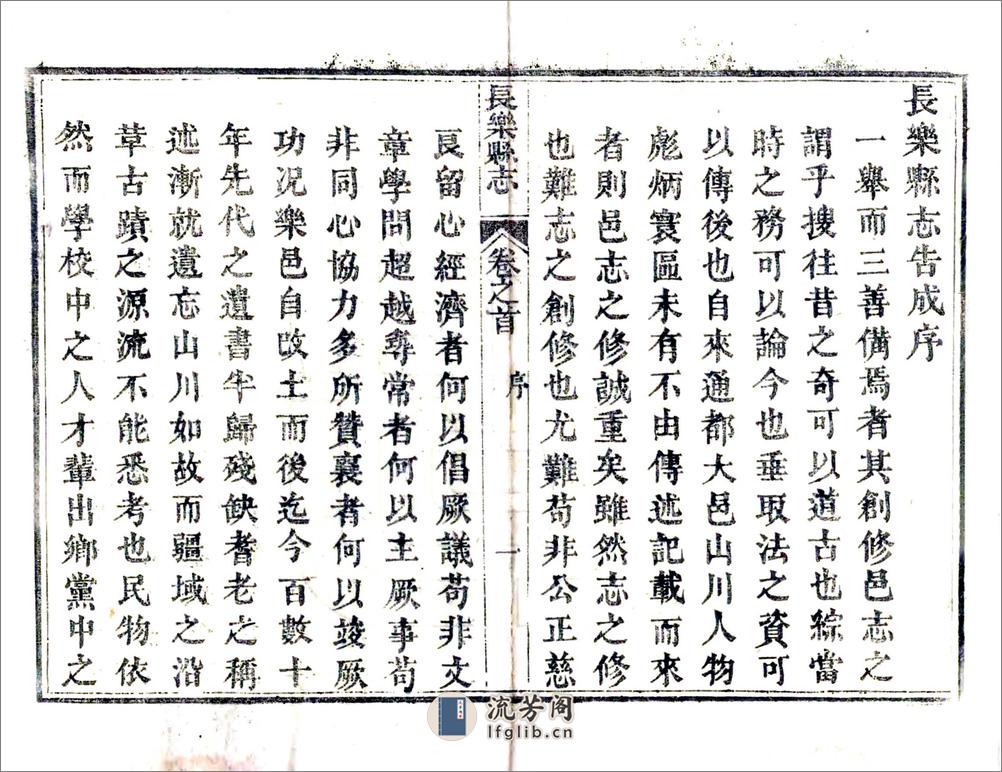 長樂縣志告成序
一舉而三善備焉者其創修邑志之
謂乎搜往昔之奇可以道古也綜當
時之務可以論今也垂取法之資可
以傳後也自來通都大邑山川人物
彪炳寰區未有不由傳述記載而來
者則邑志之修誠重矣雖然志之修
也難志之創修也尤難苟非公正慈
長樂縣志 卷之首 序 一
良留心經濟者何以倡厥議苟非文
章學問超越尋常者何以主厥事苟
非同心協力多所贊襄者何以竣厥
功況樂邑自改土而後迄今百數十
年先代之遺書半歸殘缺耆老之稱
述漸就遺忘山川如故而疆域之沿
草古蹟之源流不能悉考也民物依
然而學校中之人才輩出鄉黨中之
流芳阁
lfglib.cn